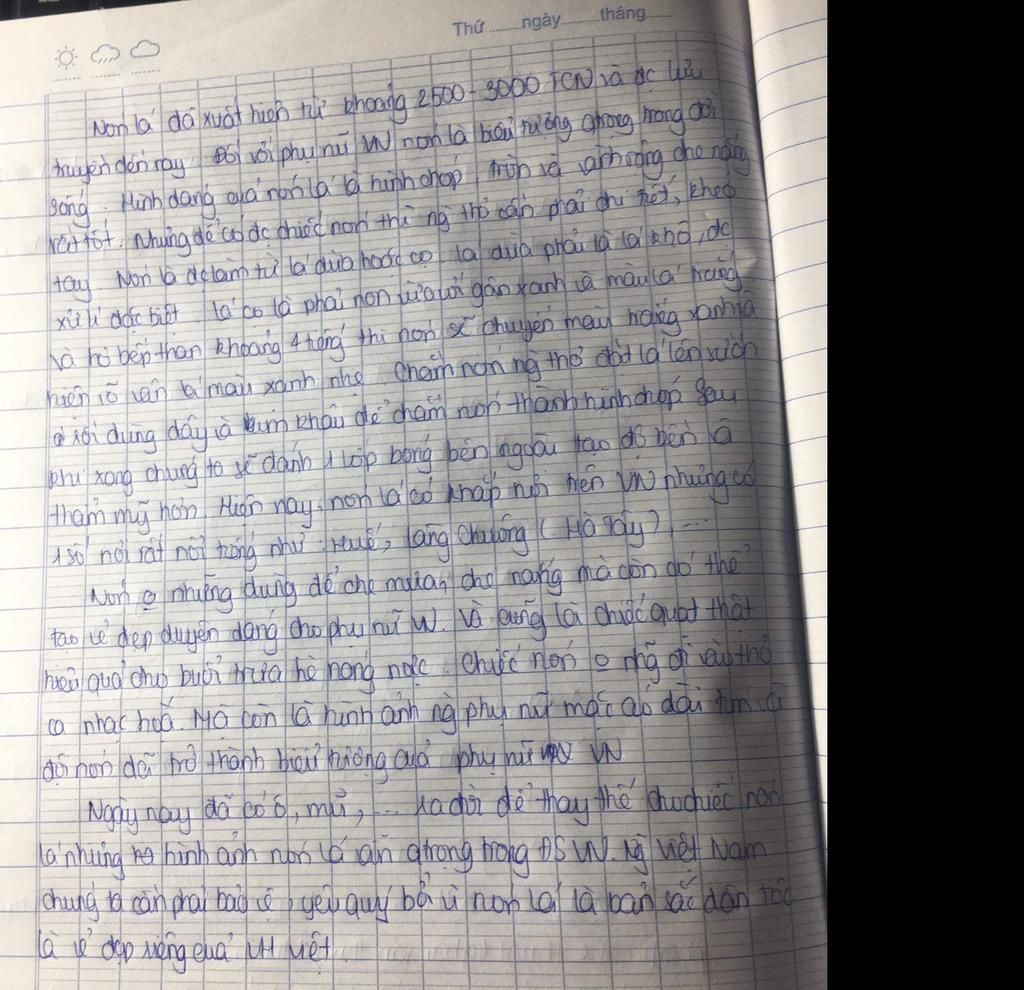 Thứ ........ ngày ........ tháng ........
Nón lá đã xuất hiện từ khoảng 2500 - 3000 TCN và đc lưu
truyền đến nay. Đối với phụ nữ VN nón lá biểu tượng qtrong trong đời
sống. Hình dạng quả nón lá là hình chóp, tròn và vành rộng che nắng
rất tốt. Nhưng để có đc chiếc nón thì ng thợ cần phải chi tiết, khéo
tay. Nón lá đc làm từ lá dừa hoặc cọ, lá dừa phải là lá khô, đc
xử lí đặc biệt lá cọ là phải non vừa với gân xanh và màu lá trắng
và hơ bếp than khoảng 4 tiếng thì nón sẽ chuyển màu trắng xanh và
hiện rõ vân lá màu xanh nhẹ. Chằm nón ng thợ đặt lá lên vành
rồi dùng dây và kim khâu để chằm nón thành hình chóp Sau
khi xong chúng ta sẽ đánh 1 lớp bóng bên ngoài tạo độ bền và
thẩm mỹ hơn. Hiện nay, nón lá có khắp nơi trên VN nhưng có
1 số nơi rất nổi tiếng như: Huế, làng Chuông (Hà Tây) ...
Nón o những dùng để che mưa, che nắng mà còn có thể
tạo vẻ đẹp duyên dáng cho phụ nữ VN. Và cũng là chiếc quạt thật
hiệu quả cho buổi trưa hè nóng nực. Chiếc nón o nhg đi vào thơ
ca nhạc hoạ. Mà còn là hình ảnh ng phụ nữ mặc áo dài tím và
đội nón đã trở thành biểu tượng quả phụ nữ VN
Ngày nay đã có ô, mũ, ... ra đời để thay thế cho chiếc nón
lá nhưng hình ảnh nón lá vẫn qtrọng trong ĐS VN. Ng Việt Nam
chúng ta cần phải bảo vệ, yêu quý bởi vì nón lá là bản sắc dân tộc
là vẻ đẹp riêng quả VH Việt.